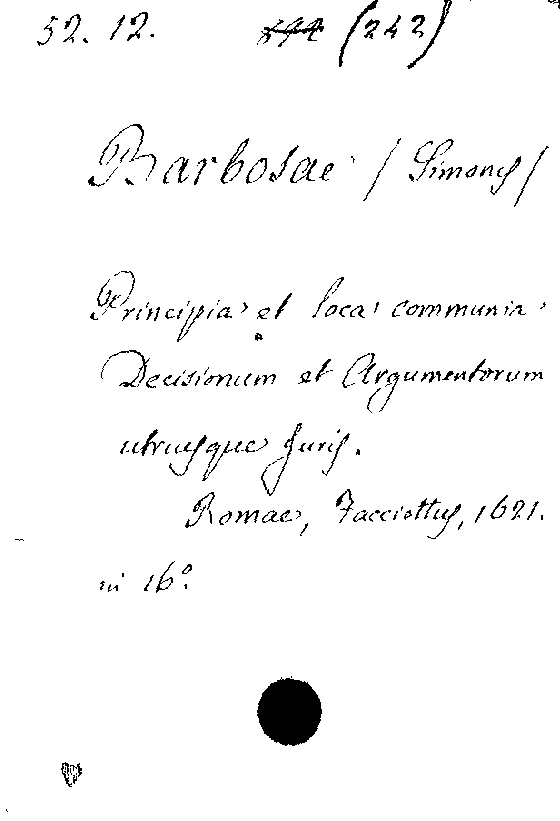 52. 12. (242)
Barbosae / Simonis /
Principia et loca communia
Decisionum et Argumentorum
utriusque Juris.
Romae, Facciottus, 1621.
in 16º.